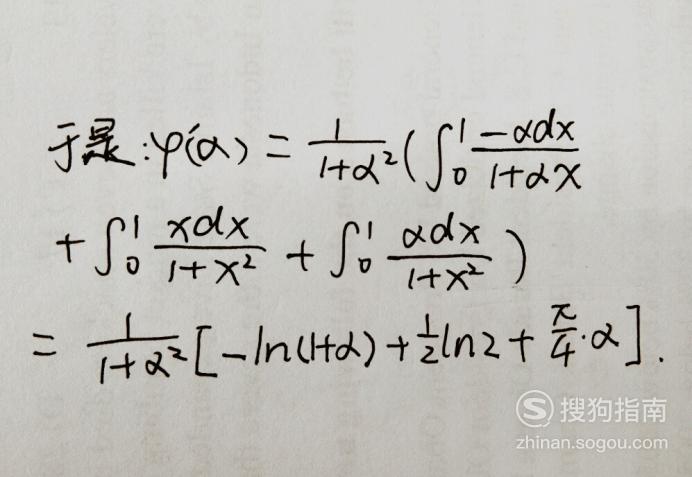 于是:φ'(α) = \frac{1}{1+α^2}(∫_0^1 \frac{-αdx}{1+αx}
+ ∫_0^1 \frac{xdx}{1+x^2} + ∫_0^1 \frac{αdx}{1+x^2})
= \frac{1}{1+α^2}[-ln(1+α)+\frac{1}{2}ln2+\frac{π}{4}·α].
S 搜狗指南
zhinan.sogou.com